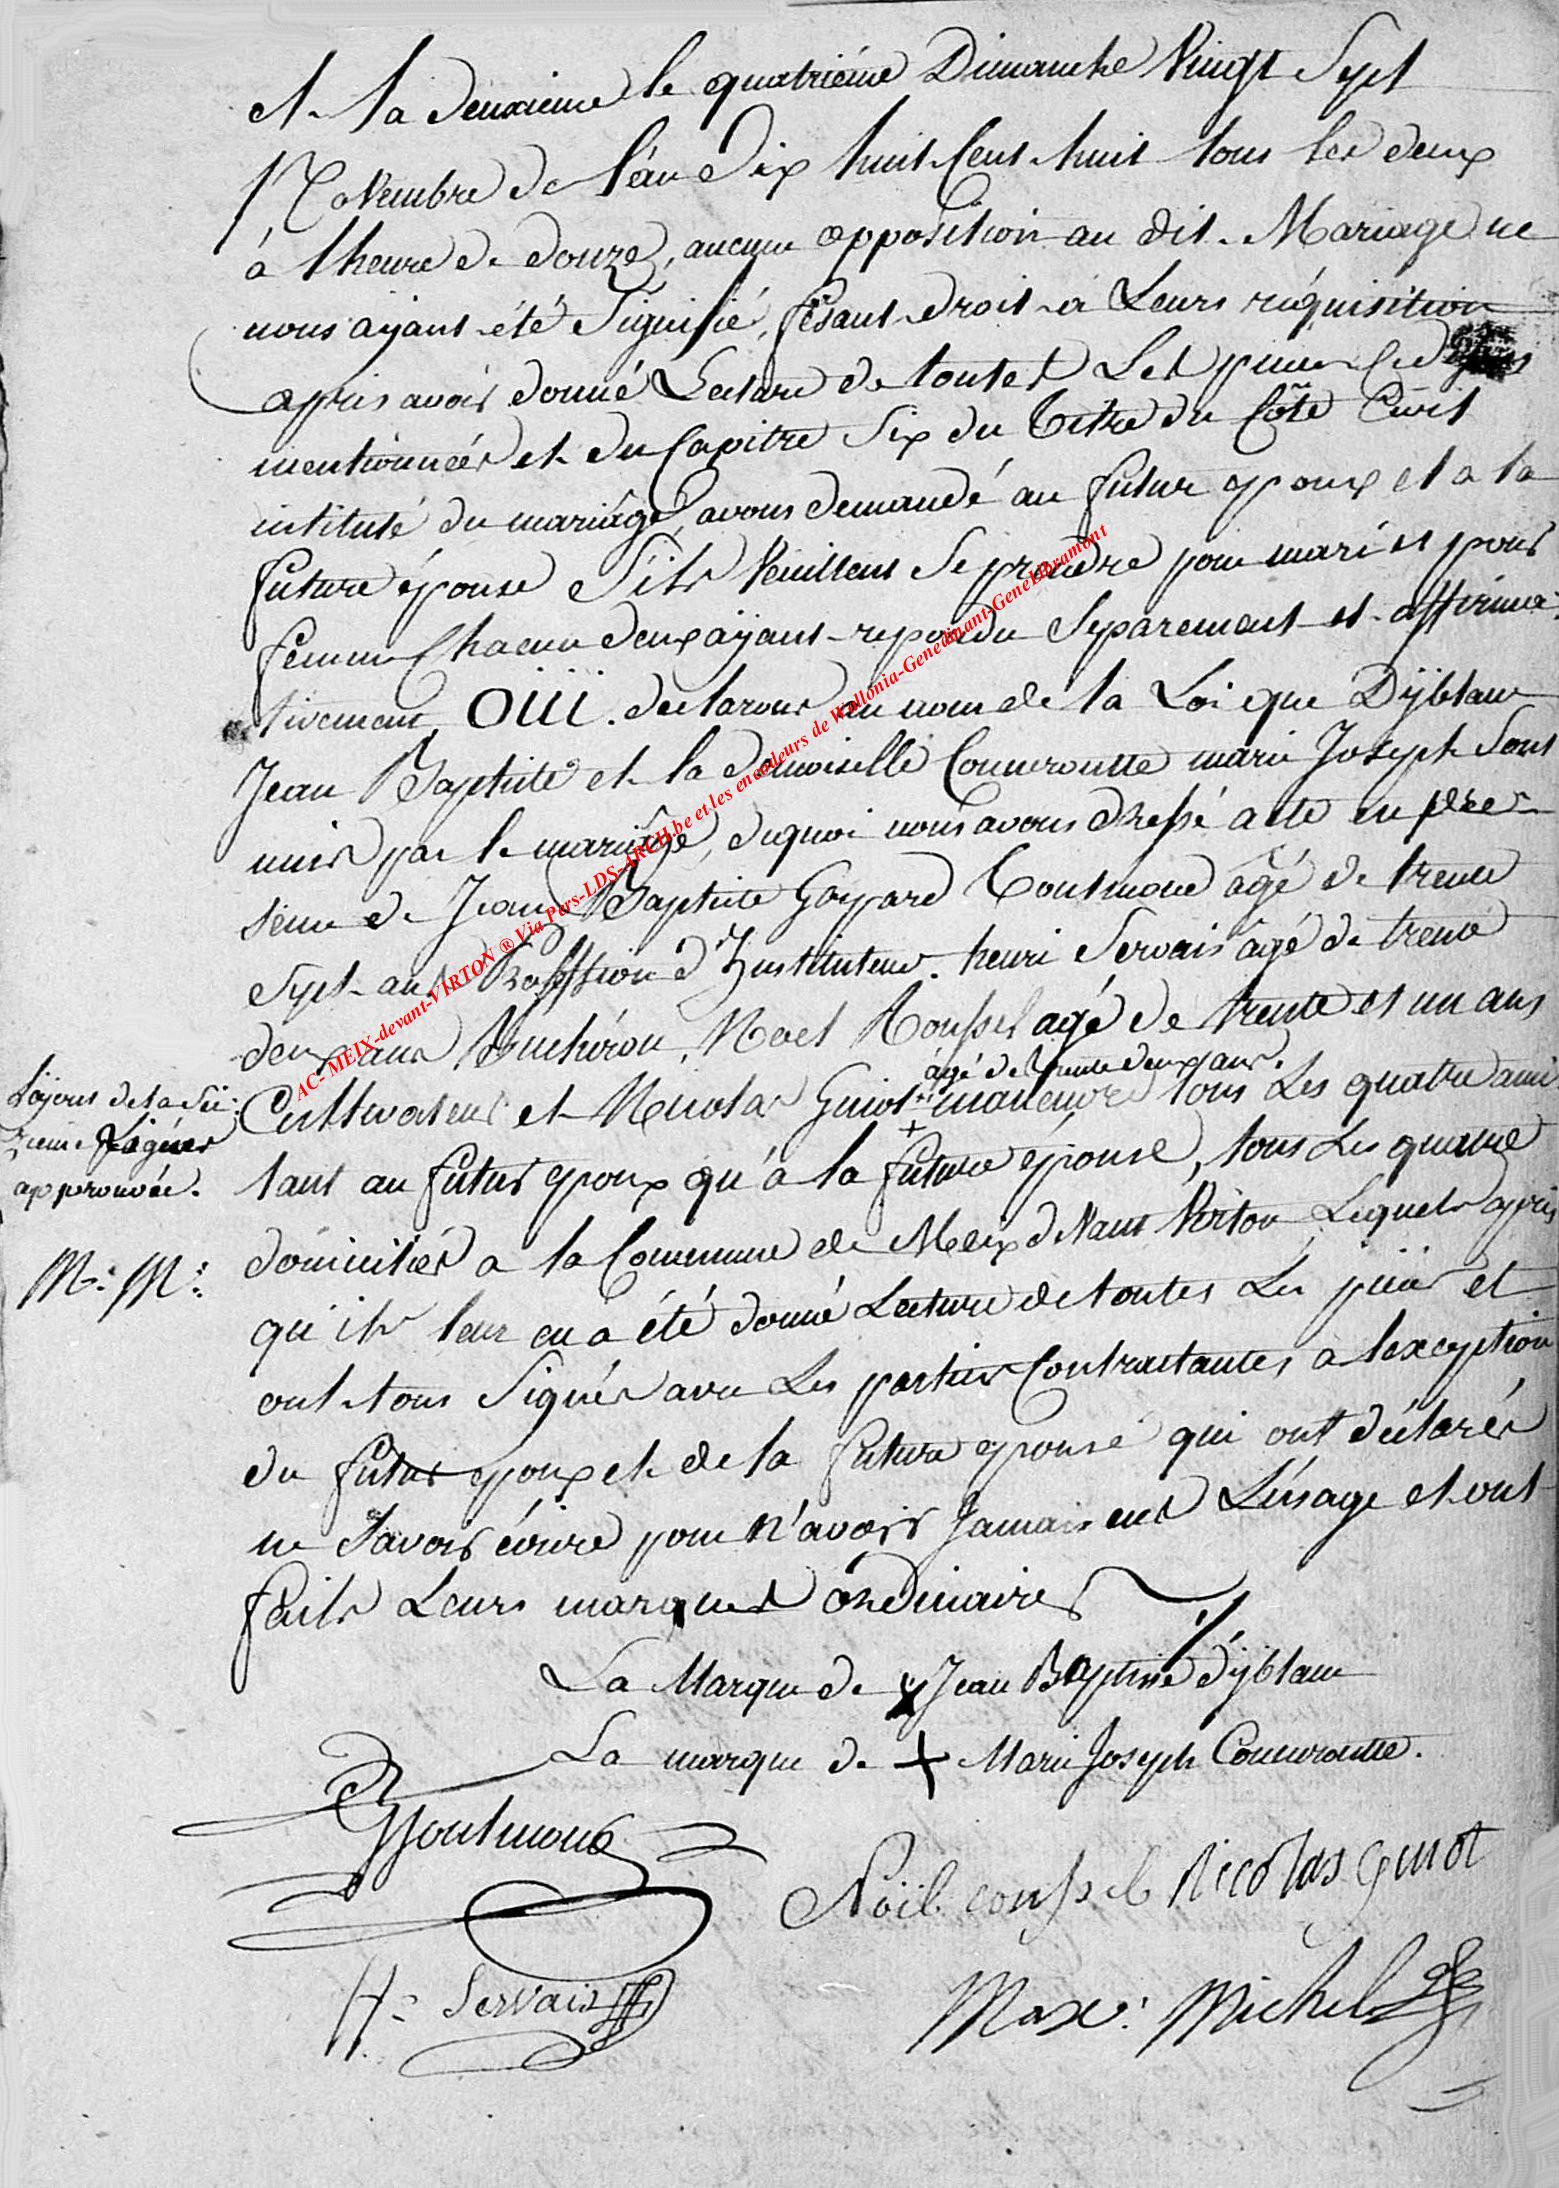 et la deuxieme le quatriéme Dimanche Vingt Sept
Novembre de l'an Dix huit Cent huit tous les deux
à lheure de douze, aucune opposition au dit Mariage ne
nous ayant été Signifié, fésant droit à Leurs réquisition
apris avoir donné Lecture de toutes Les pieces Ci dessus
mentionnées et du Capitre Six du Titre du Côde Civil
intitulé du mariâge, avons demandé au futur epoux et a la
future épouse S'ils Veuillent Se prendre pour mari et pour
femme Chacun deux ayant repondu Séparement et affirma
tivement OÜÏ. declarons au nom de la Loi que Dÿblaur
Jean Baptiste et la demoiselle Couuroutte marie Joseph Sont
unis par le mariâge, de quoi nous avons dressé acte en pré
sence de Jean Baptiste Gaspard Toutmond âgé de trente
Sept ans Proffession d'Instituteur. henri Servais âgé de trente
deux ans Bucheron, Noel Coussel agé de trente et un ans
Cultivateur et Nicolas Guiot + manoeuvre tous Les quatre ami
âgé de trente deux ans.
tant au futur epoux qu'à la future épouse, tous Les quatre
domiciliés a la Commune de Meix dVant Virton Lequels apris
qu'ils leur en a été donné Lecture de toutes Les pieces et
ont tous Signés avec Les parties Contractantes à lexception
du futur epoux et de la future epouse qui ont déclarés
ne Savoir écrire pour N'avoir Jamais eut L'usage et ont
faits Leurs marques ordinaires
L'ajout de la Sei:
zieme Ligne
approuvée.
M: M:
La Marque de X Jean Baptiste dÿblaur
La marque de + Marie Joseph Couuroutte.
Toutmond
Noïl coussel Nicolas guiot
H. Servais
Max: Michel
AC- MEIX-devant-VIRTON ® Via Pers-LDS-ARCH.be et les encodeurs de Wallonia-Genedinant-GeneLibramont